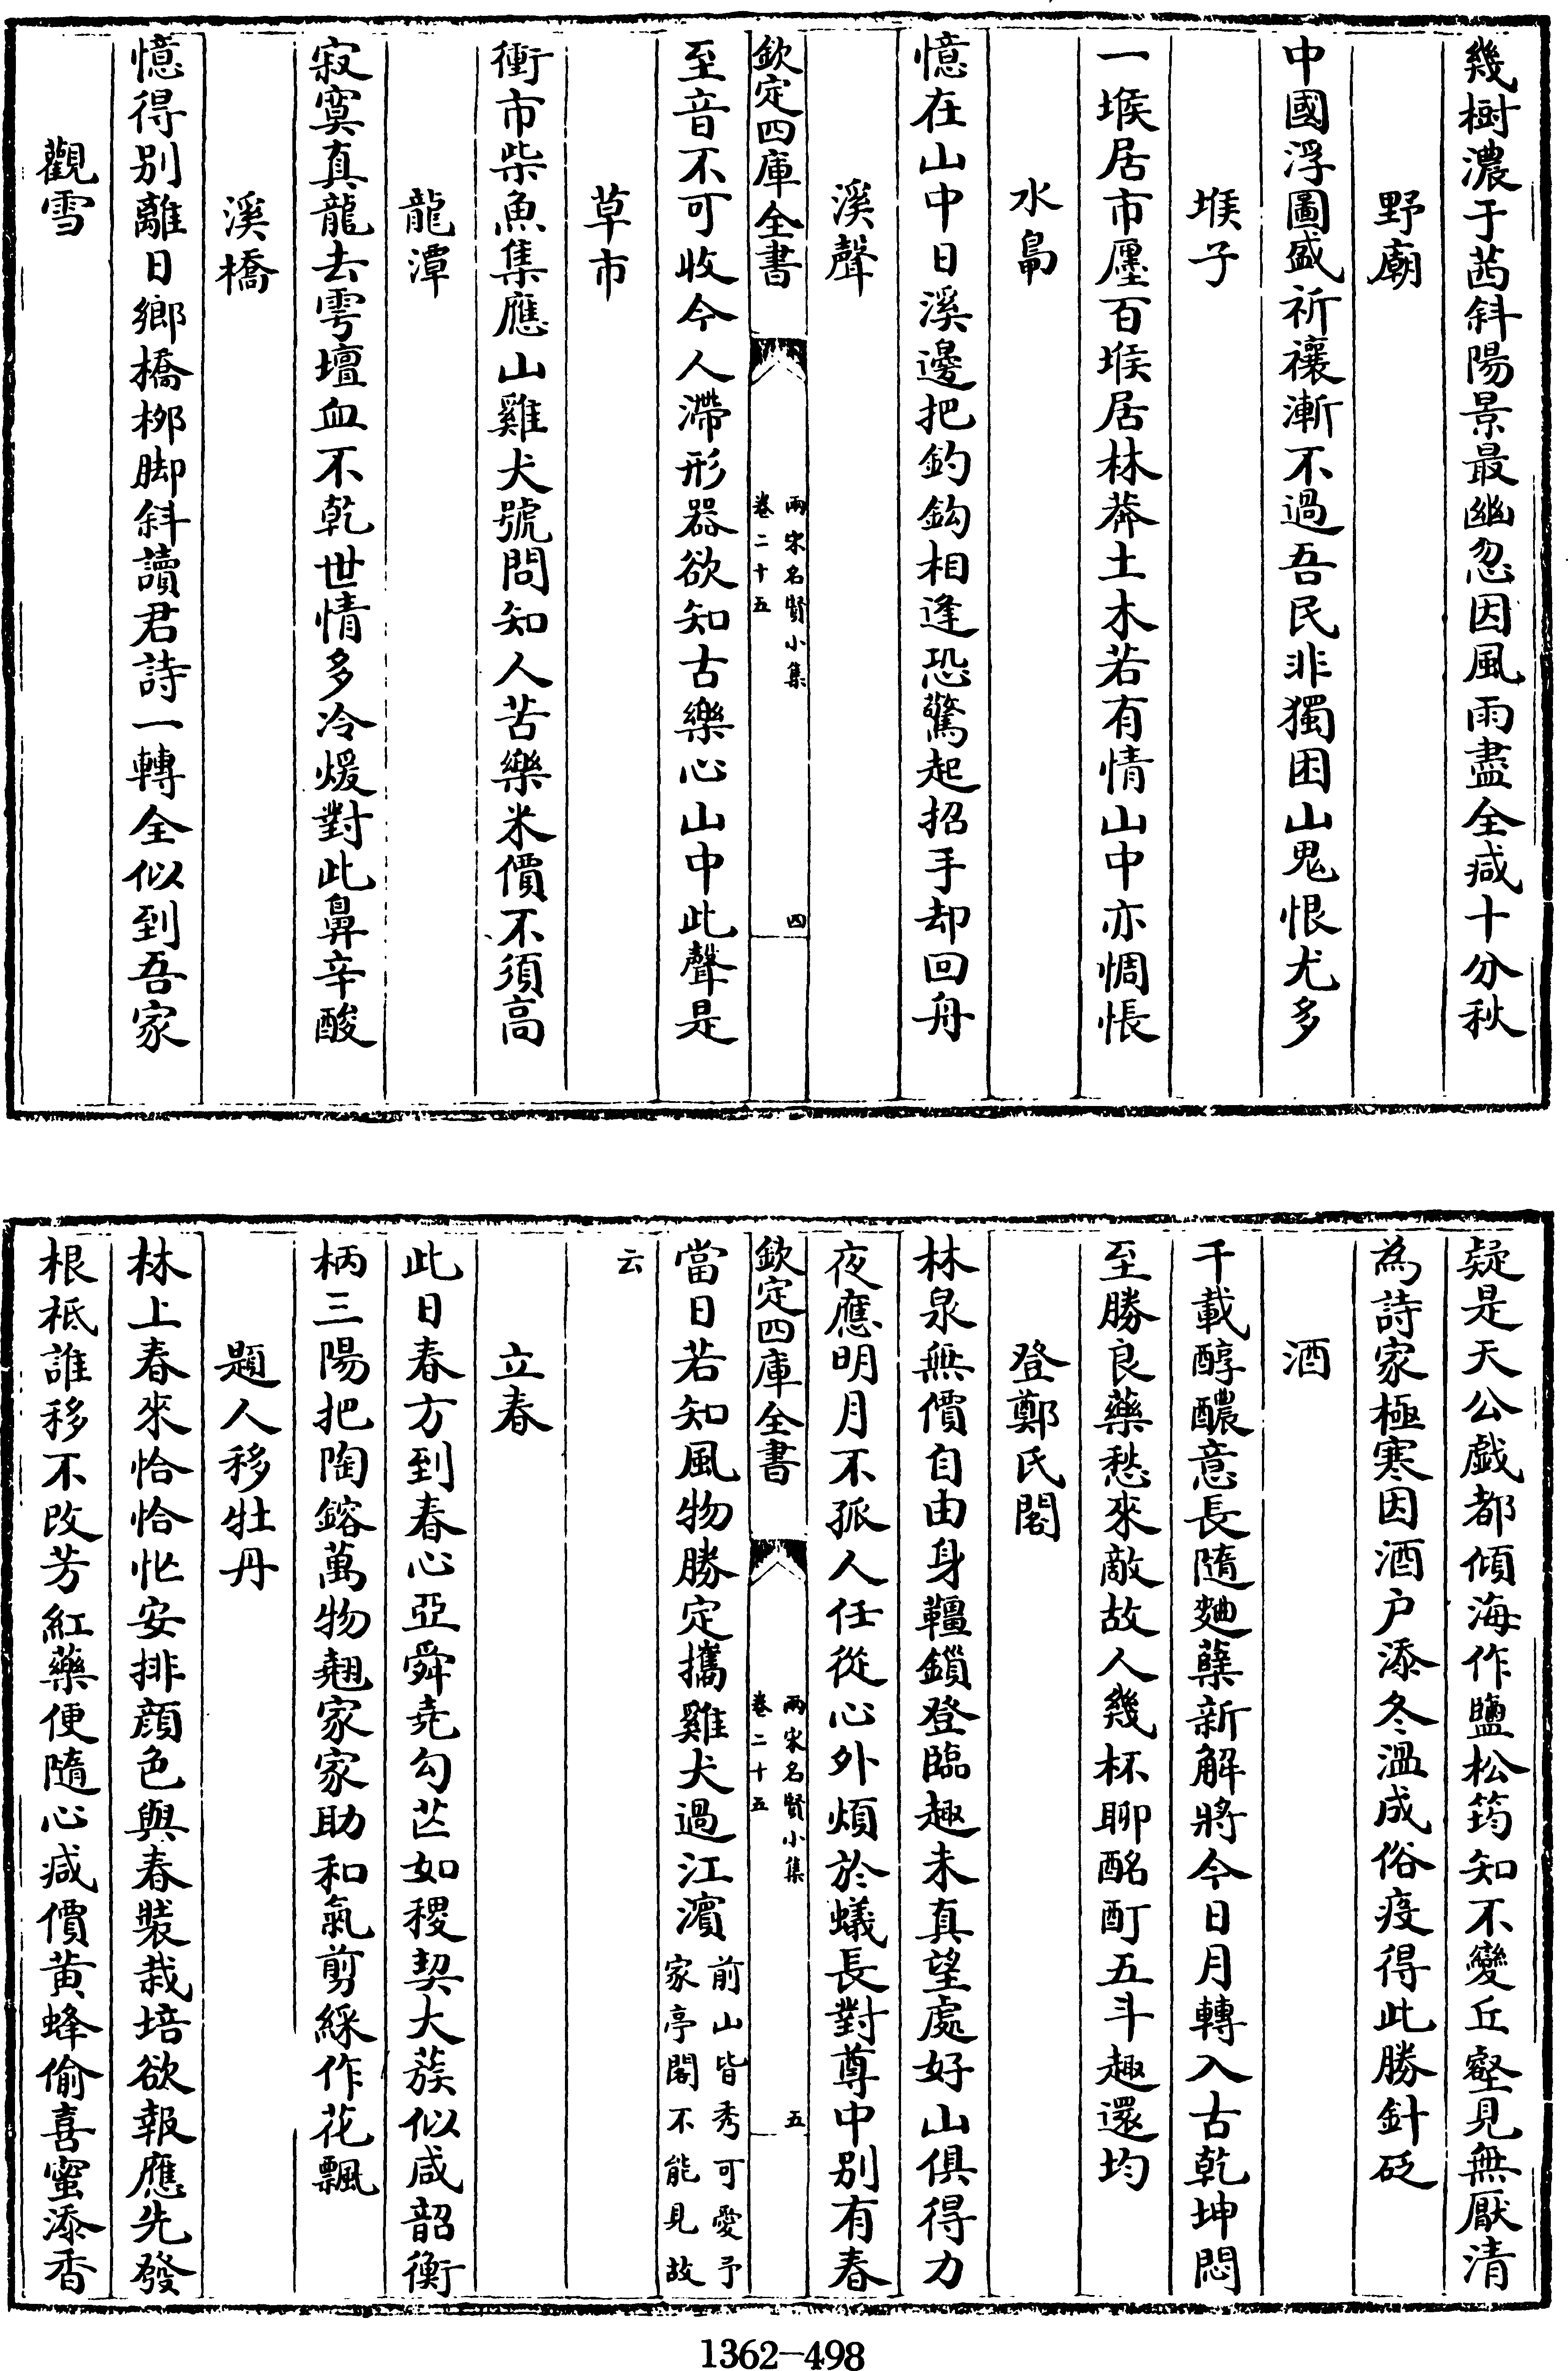 幾樹濃于茜斜陽景最幽忽因風雨盡全減十分秋
野廟
中國浮圖盛祈禳漸不過吾民非獨困山鬼恨尤多
堠子
一堠居市廛百堠居林莽土木若有情山中亦惆悵
水鳥
憶在山中日溪邊把釣鈎相逢恐驚起招手却回舟
溪聲
欽定四庫全書
兩宋名賢小集
卷二十五
四
至音不可收今人滯形器欲知古樂心山中此聲是
草市
衝市柴魚集應山雞犬號問知人苦樂米價不須高
龍潭
寂寞真龍去雩壇血不乾世情多冷煖對此鼻辛酸
溪橋
憶得別離日鄉橋栁脚斜讀君詩一轉全似到吾家
觀雪
疑是天公戲都傾海作鹽松筠知不變丘壑見無厭清
為詩家極寒因酒户添冬溫成俗疫得此勝針砭
酒
千載醇醲意長隨麯蘖新解將今日月轉入古乾坤悶
至勝良藥愁來敵故人幾杯聊酩酊五斗趣還均
登鄭氏閣
林泉無價自由身韁鎖登臨趣未真望處好山俱得力
夜應明月不孤人任從心外煩於蟻長對尊中別有春
欽定四庫全書
兩宋名賢小集
卷二十五
五
當日若知風物勝定攜雞犬過江濵前山皆秀可愛予
家亭閣不能見故
云
立春
此日春方到春心亞舜堯勾芒如稷契大蔟似咸韶衡
柄三陽把陶鎔萬物翹家家助和氣剪綵作花飄
題人移牡丹
林上春來恰恰忙安排顔色與春裝栽培欲報應先發
根柢誰移不改芳紅藥便隨心減價黄蜂偷喜蜜添香
1362-498